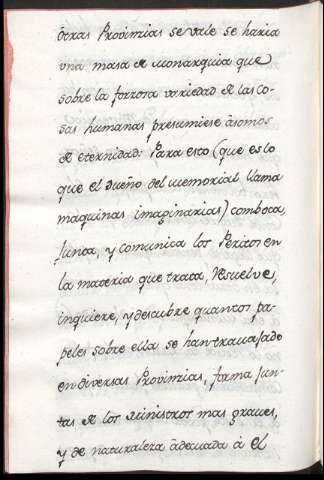 otras Provinzias se vale se haria
vna masa de monarquia que
sobre la forzosa variedad de las co-
sas humanas presumiese asomos
de eternidad: Para esto (que es lo
que el dueño del memorial llama
maquinas imaginarias) comboca,
Junta, y comunica los Peritos en
la materia que trata, Resuelve,
inquiere, y descubre quantos pa-
peles sobre ella se han trauajado
en diversas Provinzias, forma Jun-
tas de los Ministros mas graues,
y de naturaleza adequada à el